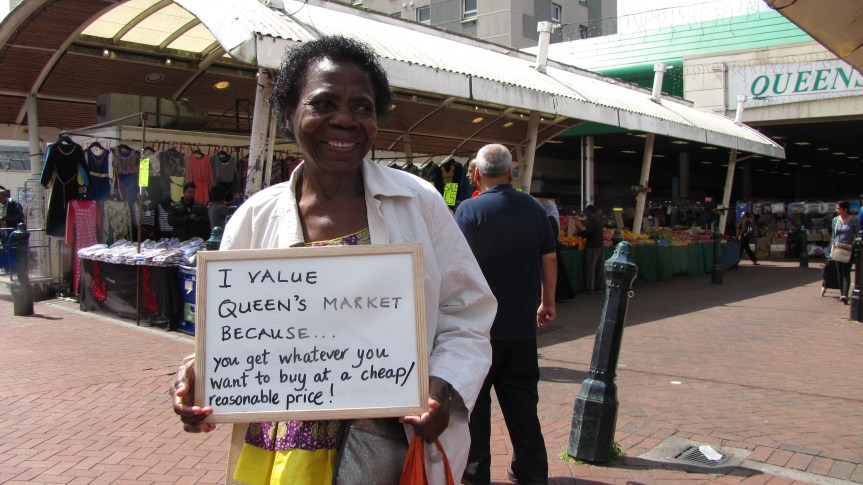 QUEENS
I VALUE
QUEEN'S MARKET
BECAUSE...
you get whatever you
want to buy at a cheap/
reasonable price!